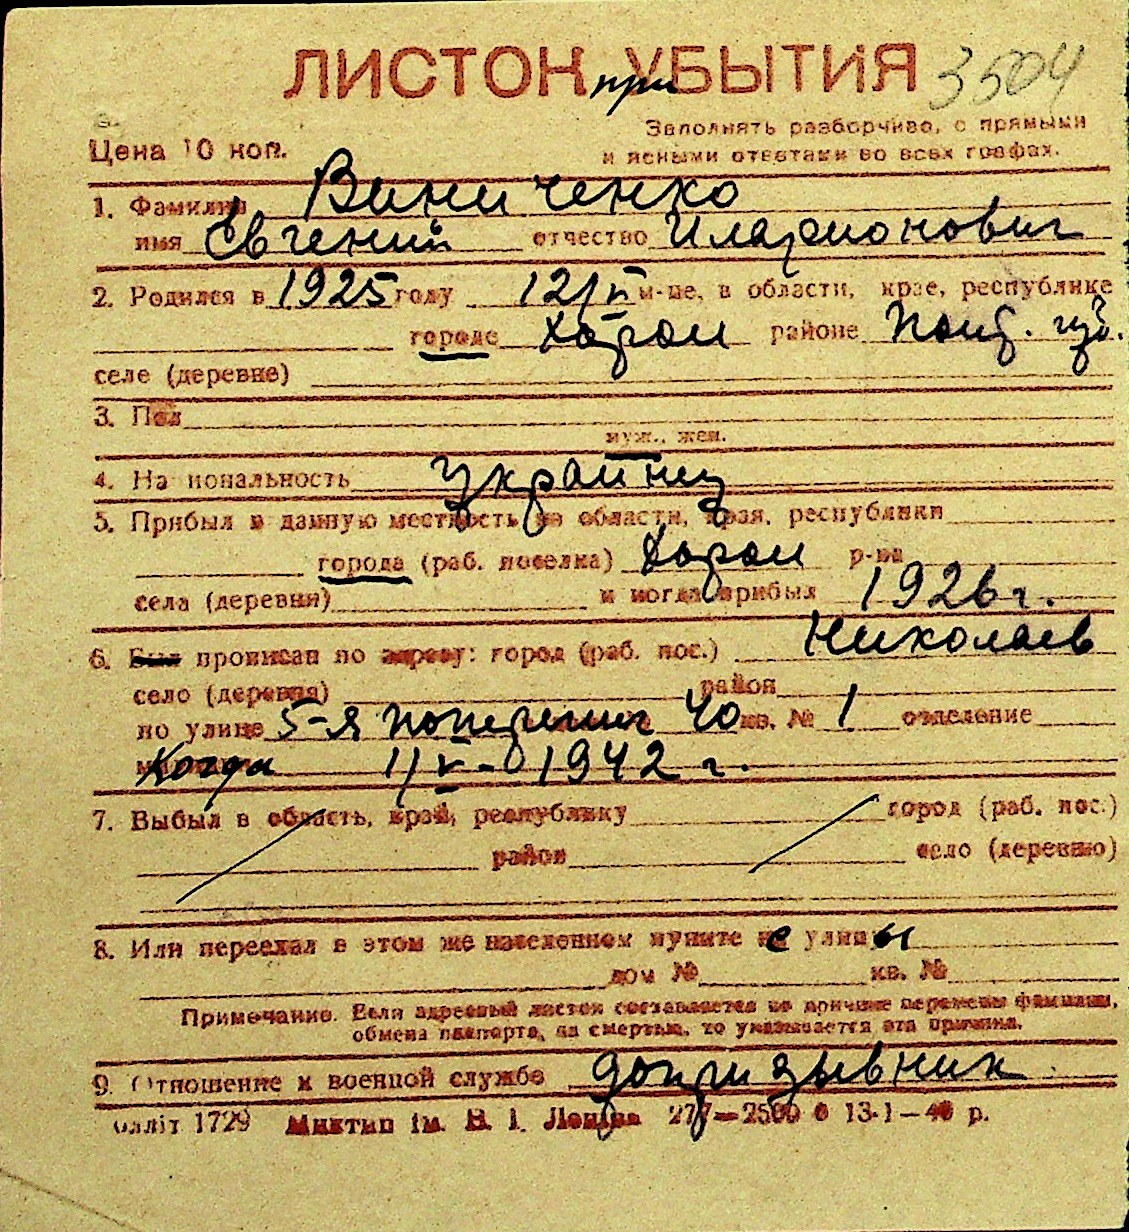 ЛИСТОК при УБЫТИЯ 3504
Заполнять разборчиво, с прямыми
Цена 10 коп. и ясными ответами во всех графах.
1. Фамилия Виниченко
имя Євгений отчество Иларионович
2. Родился в 1925 году 12/V м-це, в области, крае, республике
городе Хорол районе Полт. губ.
селе (деревне)
3. Пол
муж., жен.
4. Национальность Украинец
5. Прибыл в данную местность из области, края, республики
города (раб. поселка) Хорол р-на
села (деревня) и когда прибыл 1926 г.
6. Был прописан по адресу: город (раб. пос.) Николаев
село (деревня) район
по улице 5-я поперечная 40 кв. № 1 отделение
Когда 1/V-1942 г.
7. Выбыл в область, край, республику город (раб. пос.)
район село (деревню)
8. Или переехал в этом же населенном пункте с улицы
дом № кв. №
Примечание. Если адресный листок составляется по причине перемены фамилии,
обмена паспорта, за смертью, то указывается эта причина.
9. Отношение к военной службе допризывник
блліт 1729 Миктип ім. В. І. Леніна 277—2500 0 13-1—40 р.